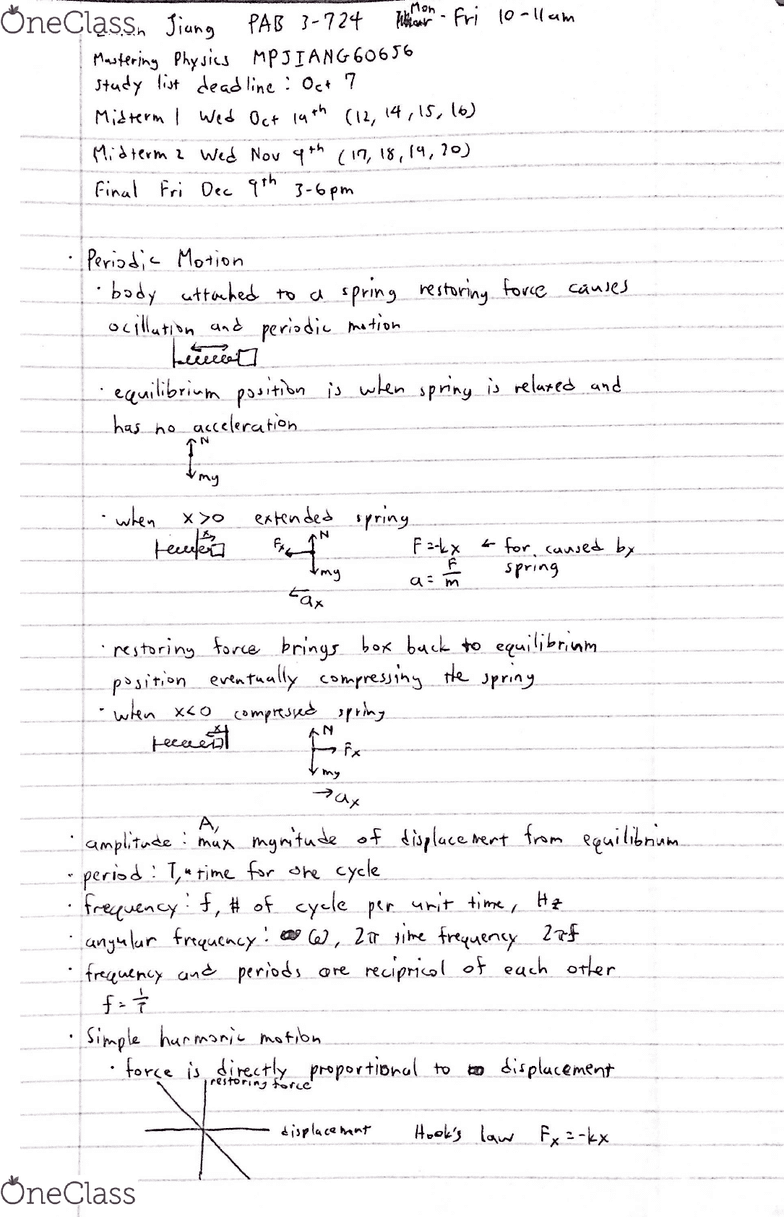 OneClass
Jiang PAB 3-724 Mon - Fri 10-11am
Mastering Physics MPJIANG60656
Study list deadline: Oct 7
Midterm 1 Wed Oct 19th (12, 14, 15, 16)
Midterm 2 Wed Nov 9th (17, 18, 19, 20)
Final Fri Dec 9th 3-6pm
· Periodic Motion
· body attached to a spring restoring force causes
ocillation and periodic motion
· equilibrium position is when spring is relaxed and
has no acceleration
N
mg
· when x>0 extended spring
x
Fx N
mg
ax
F=-kx ← for. caused by
spring
a = F/m
· restoring force brings box back to equilibrium
position eventually compressing the spring
· when x<0 compressed spring
x
N
Fx
mg
→ax
· amplitude: A, max mgnitude of displacement from equilibrium
· period: T, time for one cycle
· frequency: f, # of cycle per unit time, Hz
· angular frequency: ω, 2π time frequency 2πf
· frequency and periods are reciprical of each other
f = 1/T
· Simple harmonic motion
· force is directly proportional to displacement
restoring force
displacement Hook's law Fx = -kx
OneClass